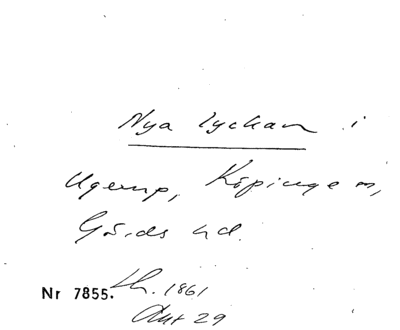 Nya lyckan i
Ugerup, Köpinge sn,
Gärds hd.
Nr 7855. Lh. 1861
Akt 29